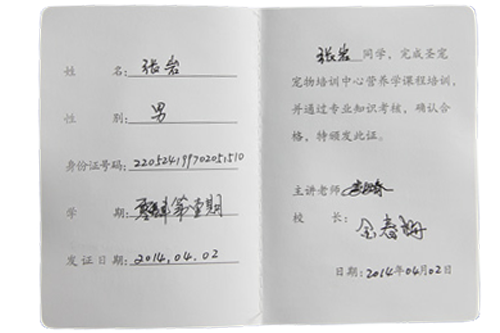 姓 名: 张岩
性 别: 男
身份证号码: 220524199702051510
学 期: 第壹期
发证日期: 2014.04.02
张岩 同学,完成圣宠
宠物培训中心营养学课程培训,
并通过专业知识考核,确认合
格,特颁发此证。
主讲老师
校 长: 金春姗
日期:2014年04月02日